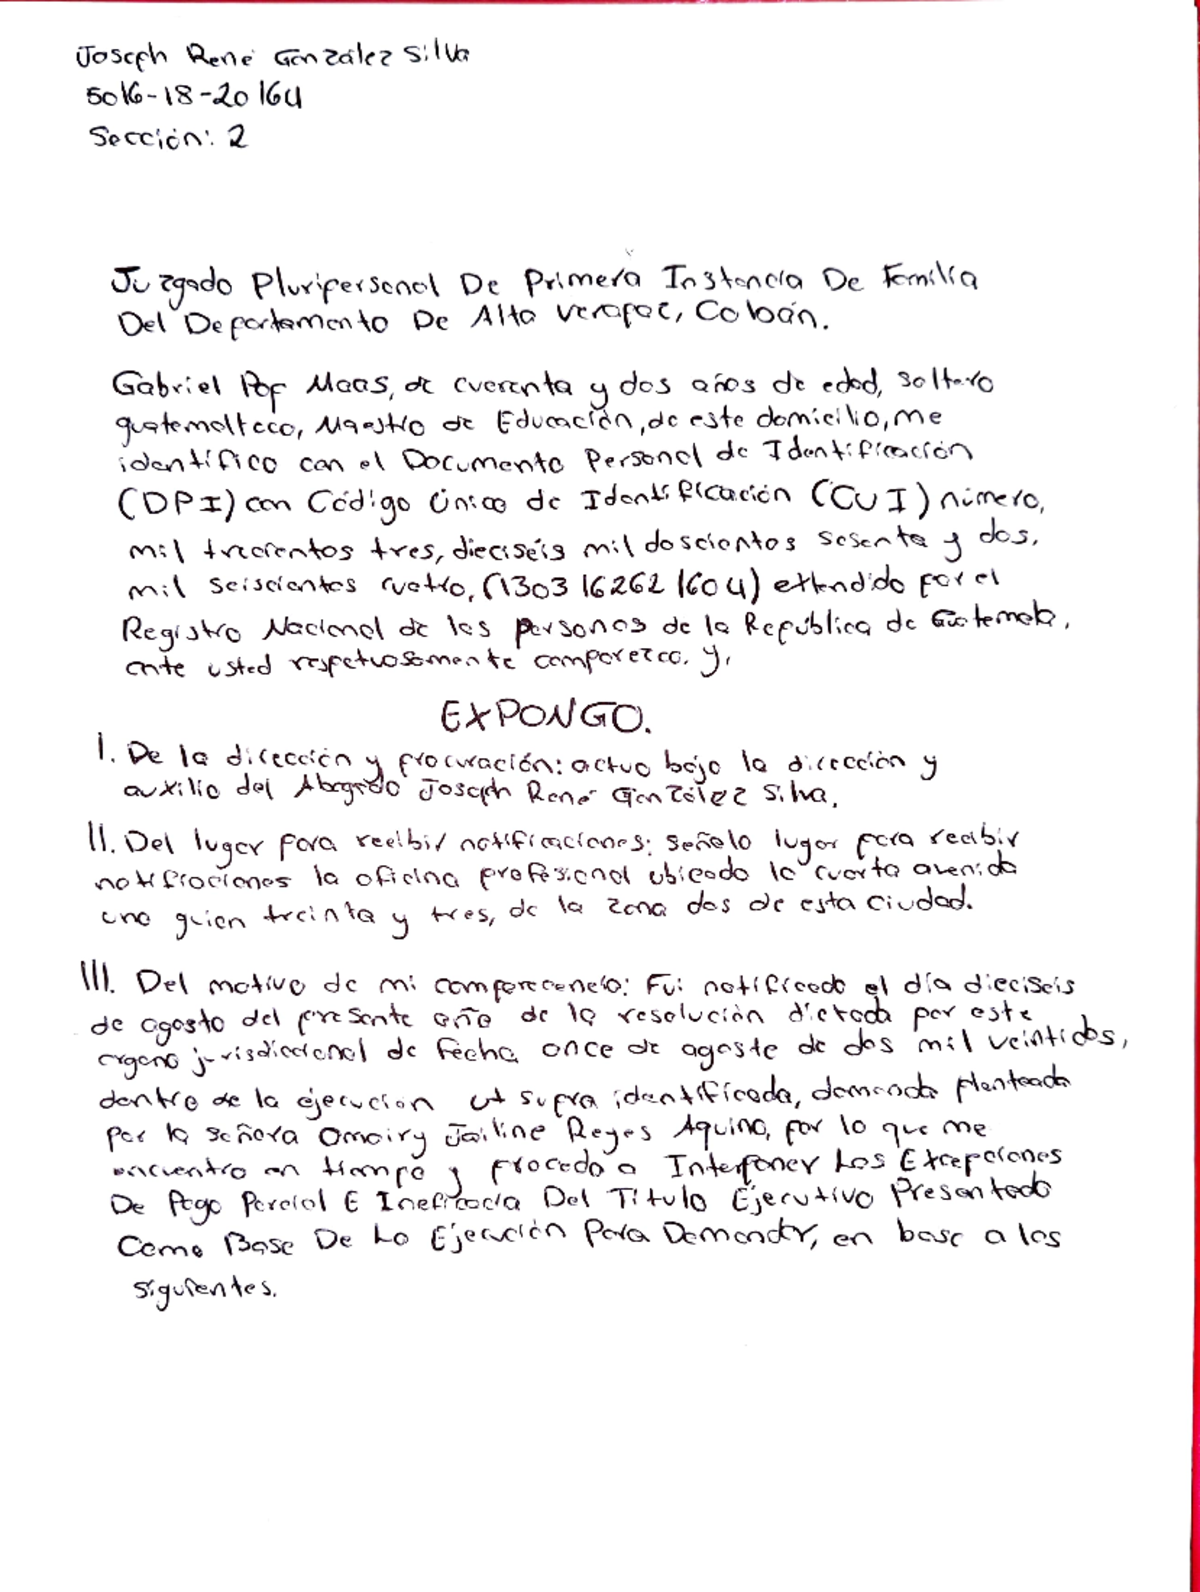 Joseph René González Silva
5016-18-20164
Sección: 2
Juzgado Pluripersonal De Primera Instancia De Familia
Del Departamento De Alta Verapaz, Cobán.
Gabriel Pop Maas, de cuarenta y dos años de edad, soltero
guatemalteco, Maestro de Educación, de este domicilio, me
identifico con el Documento Personal de Identificación
(DPI) con Código Único de Identificación (CUI) número,
mil trecientos tres, dieciséis mil doscientos sesenta y dos,
mil seiscientos cuatro, (1303 16262 1604) extendido por el
Registro Nacional de las personas de la República de Guatemala,
ante usted respetuosamente comparezco. y,
EXPONGO.
I. De la dirección y procuración: actuo bajo la dirección y
auxilio del Abogado Joseph René González Silva.
II. Del lugar para recibir notificaciones: señalo lugar para recibir
notificaciones la oficina profesional ubicada la cuarta avenida
uno guien treinta y tres, de la zona dos de esta ciudad.
III. Del motivo de mi comparecencia: Fui notificado el día dieciseis
de agosto del presente año de la resolución dictada por este
organo jurisdiccional de fecha once de agosto de dos mil veintidos,
dentro de la ejecucion ut supra identificada, demanda planteada
por la señora Omairy Jailine Reyes Aquino, por lo que me
encuentro en tiempo y procedo a Interponer Las Excepciones
De Pago Parcial E Ineficacia Del Titulo Ejecutivo Presentado
Como Base De La Ejecución Para Demandar, en base a los
siguientes.